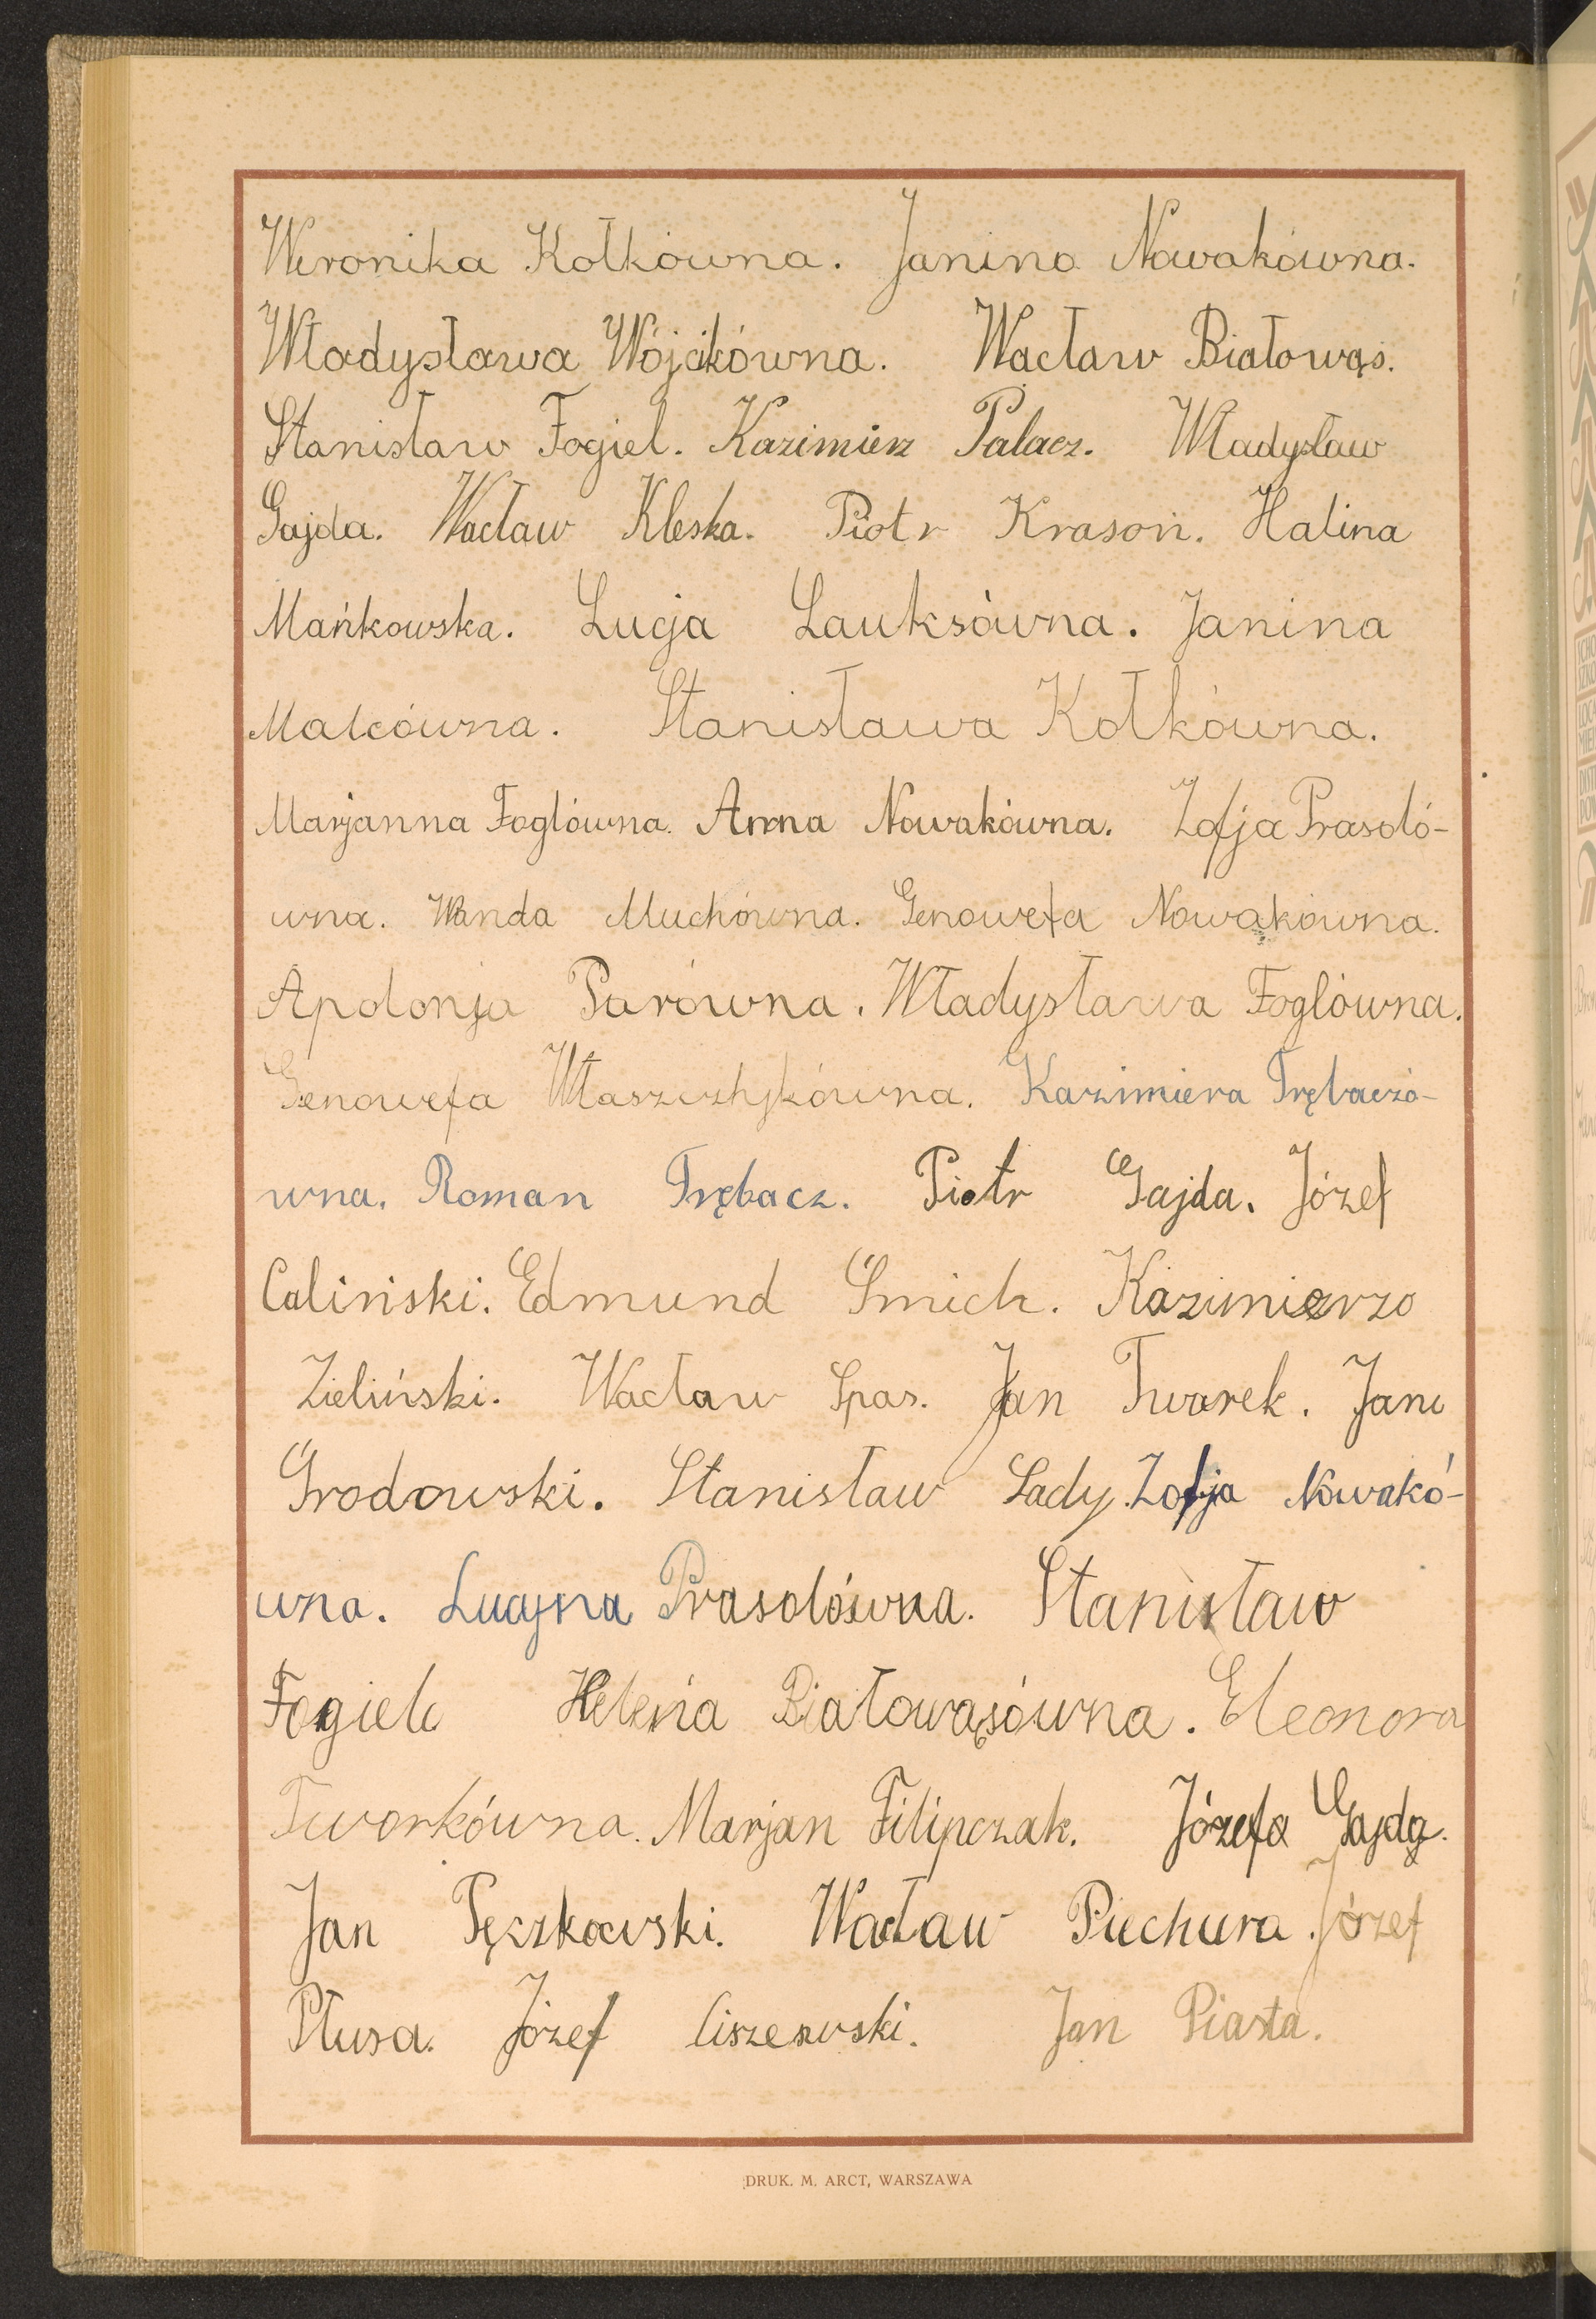 Weronika Kołkówna. Janina Nowakówna.
Władysława Wójcikówna. Wacław Białowąs.
Stanisław Fogiel. Kazimierz Palacz. Władysław
Gajda. Wacław Kleska. Piotr Krasoń. Halina
Mańkowska. Łucja Lauksówna. Janina
Malcówna. Stanisława Kołkówna.
Marjanna Foglówna. Anna Nowakówna. Zofja Prasoló-
wna. Wanda Muchówna. Genowefa Nowakówna.
Apolonja Parówna. Władysława Foglówna.
Genowefa Kazimiera Trębaczó-
wna. Roman Trębacz. Piotr Gajda. Józef
Caliński. Edmund Śmich. Kazimierz
Zieliński. Wacław Spas. Jan Tworek. Jan
Grodowski. Stanisław Lady. Zofja Nowakó-
wna. Lucyna Prasolówna. Stanisław
Fogiel Helena Białowąsówna. Eleonora
Tworkówna. Marjan Filipczak. Józefa Gajda.
Jan Pęczkowski. Wacław Piechura. Józef
Płusa. Józef Ciszewski. Jan Piasta.
DRUK. M. ARCT, WARSZAWA